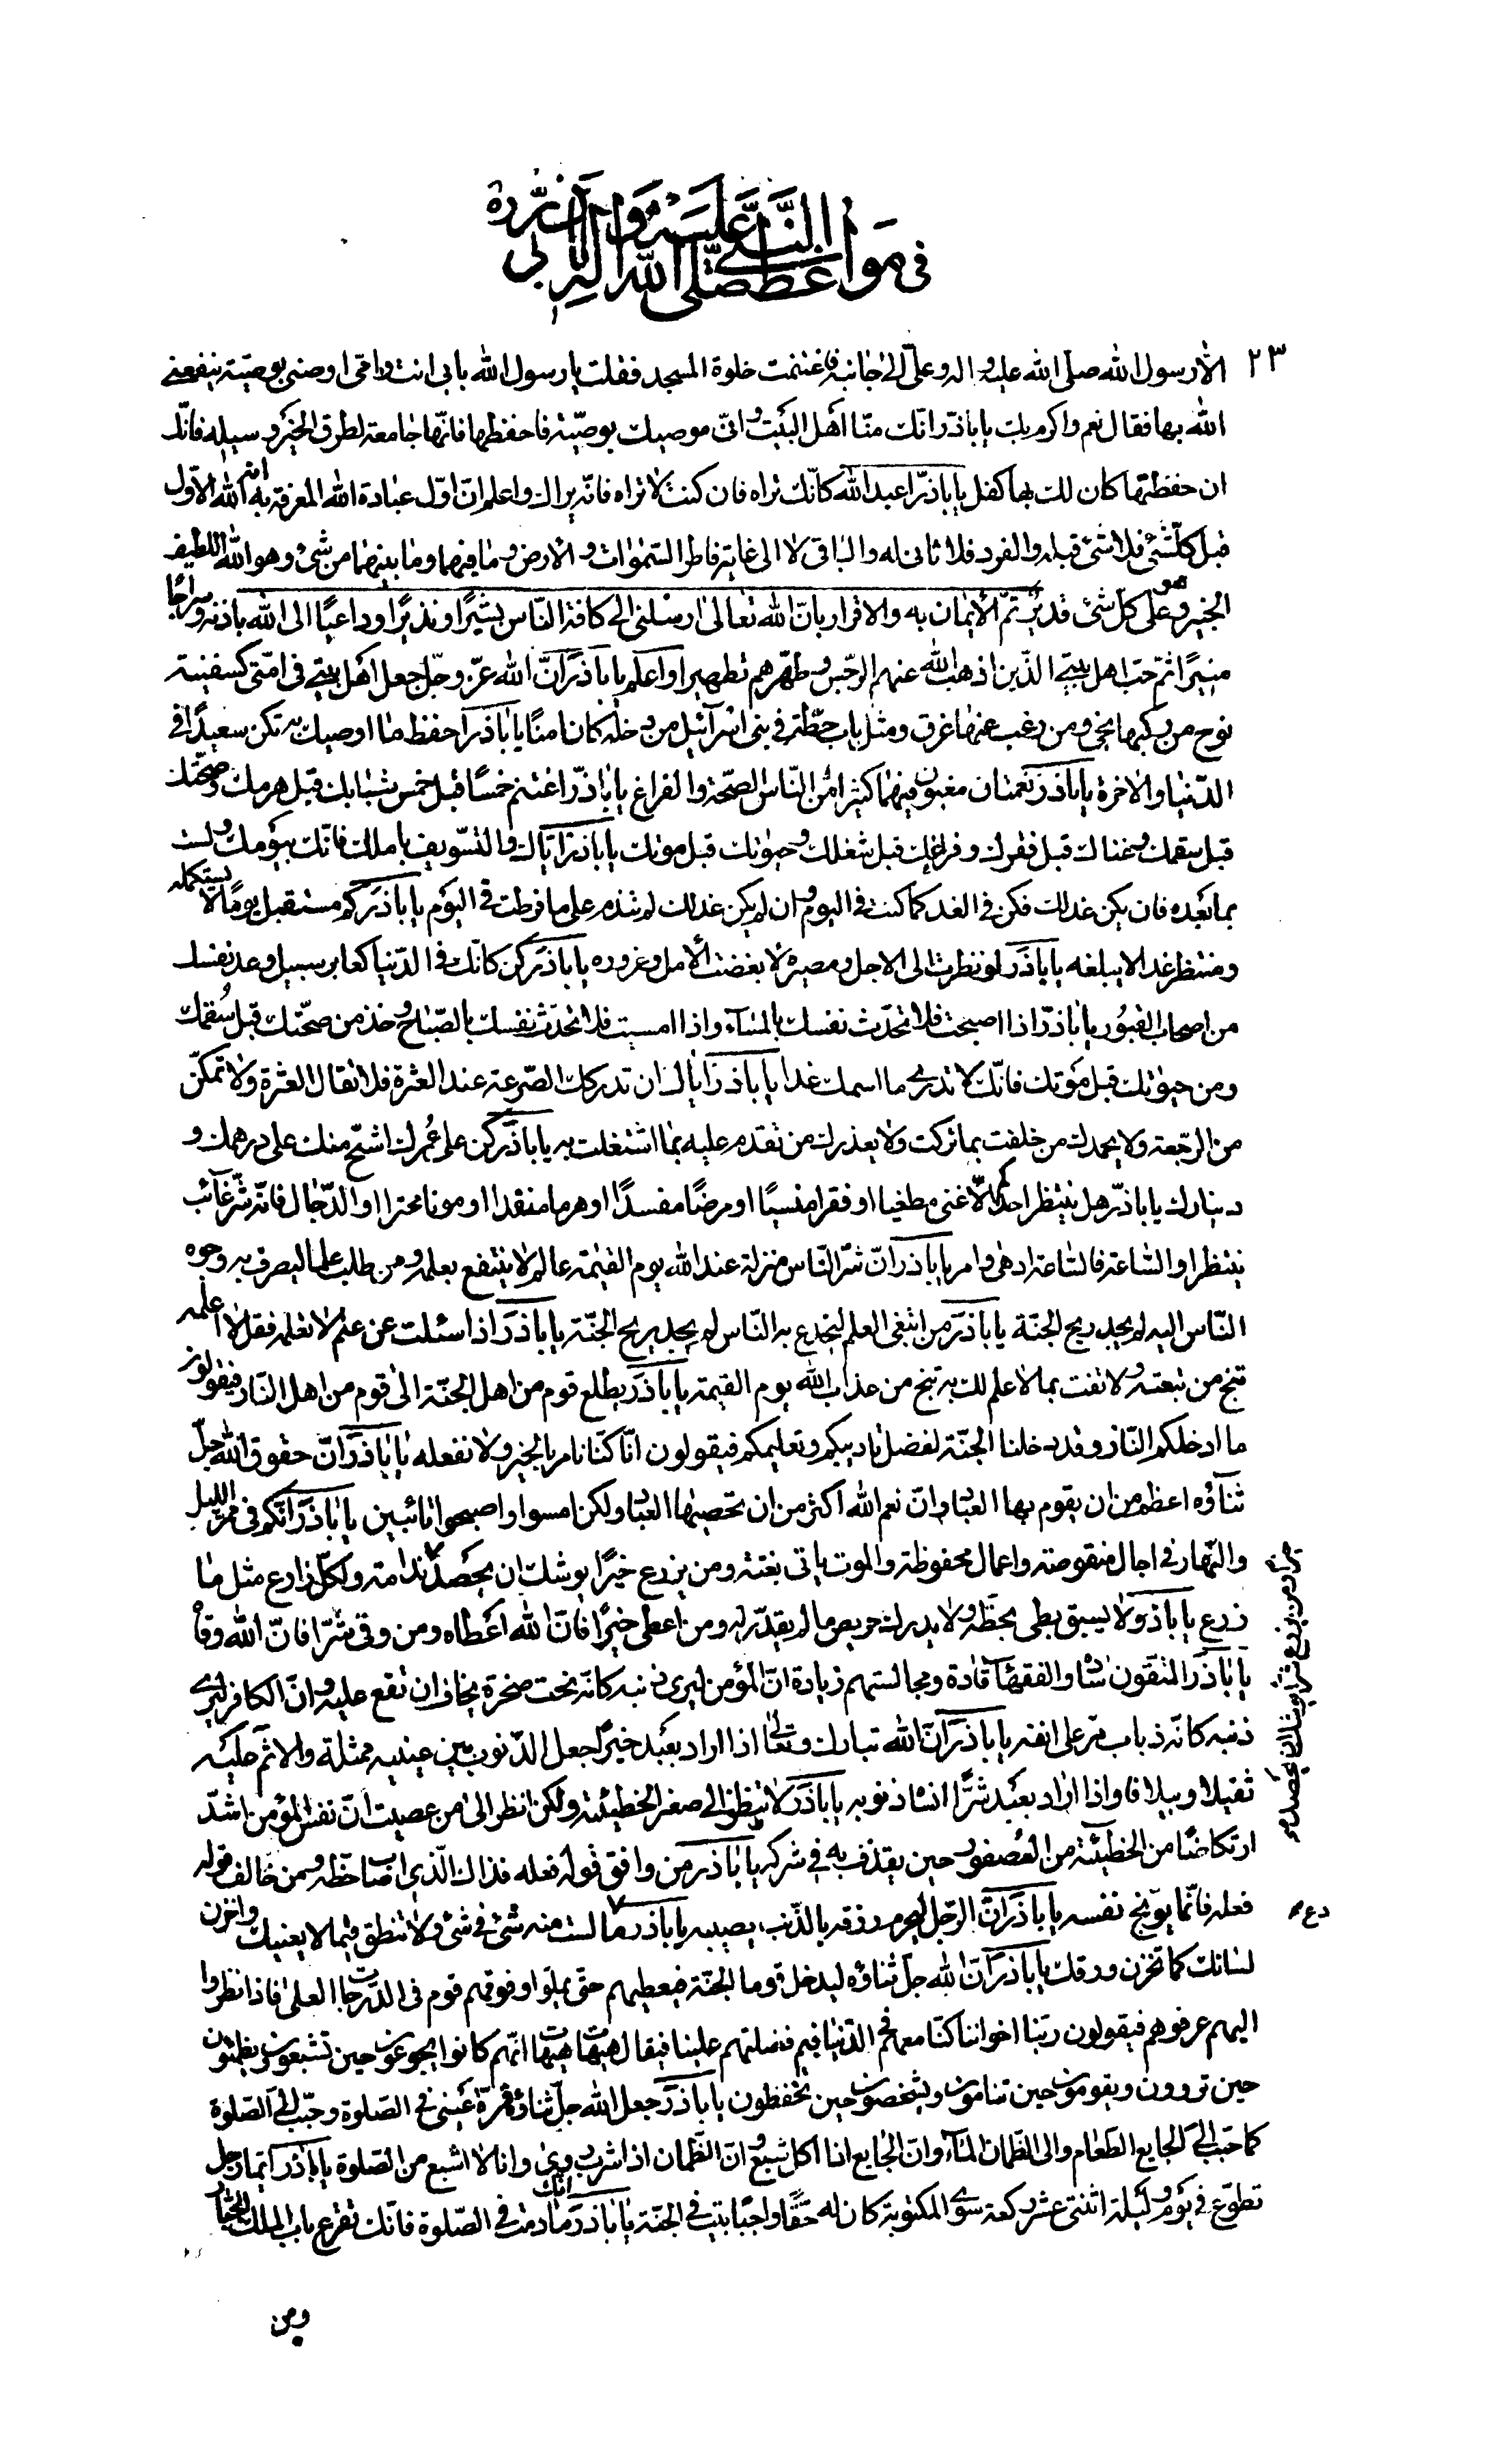 في مواعظ النبي صلى الله عليه وآله لأبي ذره
٢٣
الا رسول الله صلى الله عليه واله وعلي الى جانبه فاغتنمت خلوة المسجد فقلت يا رسول الله بابي انت وامي اوصني بوصية ينفعني
الله بها فقال نعم واكرم بك يا باذر انك منا اهل البيت واني موصيك بوصية فاحفظها فانها جامعة لطرق الخير وسبيله فانك
ان حفظتها كان لك بها كفل يا باذر اعبد الله كانك تراه فان كنت لا تراه فانه يراك واعلم ان اول عبادة الله المعرفة به انه الله الاول
قبل كل شئ فلا شئ قبله والفرد فلا ثاني له والباقي لا الى غاية فاطر السموات والارض وما فيهما وما بينهما من شئ وهو الله اللطيف
الخبير وهو على كل شئ قدير ثم الايمان به والاقرار بان الله تعالى ارسلني الى كافة الناس بشيرا ونذيرا وداعيا الى الله باذنه وسراجا
منيرا ثم حب اهل بيتي الذين اذهب الله عنهم الرجس وطهرهم تطهيرا واعلم يا باذر ان الله عز وجل جعل اهل بيتي في امتي كسفينة
نوح من ركبها نجى ومن رغب عنها غرق ومثل باب حطة في بني اسرائيل من دخله كان امنا يا باذر احفظ ما اوصيك به تكن سعيدا في
الدنيا والاخرة يا باذر نعمتان مغبون فيهما كثير من الناس الصحة والفراغ يا باذر اغتنم خمسا قبل خمس شبابك قبل هرمك وصحتك
قبل سقمك وغناك قبل فقرك وفراغك قبل شغلك وحيوتك قبل موتك يا باذر اياك والتسويف باملك فانك بيومك ولست
بما بعده فان يكن غد لك فكن في الغد كما كنت في اليوم وان لم يكن غد لك لم تندم على ما فرطت في اليوم يا باذر كم مستقبل يوما لا يستكمله
ومنتظر غدا لا يبلغه يا باذر لو نظرت الى الاجل ومصيره لا بغضت الامل وغروره يا باذر كن كانك في الدنيا كعابر سبيل وعد نفسك
من اصحاب القبور يا باذر اذا اصبحت فلا تحدث نفسك بالمساء واذا امسيت فلا تحدث نفسك بالصباح وخذ من صحتك قبل سقمك
ومن حيوتك قبل موتك فانك لا تدري ما اسمك غدا يا باذر اياك ان تدركك الصرعة عند العثرة فلا تقال العثرة ولا تمكن
من الرجعة ولا يحمدك من خلفت بما تركت ولا يعذرك من تقدم عليه بما اشتغلت به يا باذر كن على عمرك اشح منك على درهمك و
دينارك يا باذر هل ينتظر احدكم الا غنى مطغيا او فقرا منسيا او مرضا مفسدا او هرما منفدا او موتا محترا او الدجال فانه شر غائب
ينتظر او الساعة فالساعة ادهى وامر يا باذر ان شر الناس منزلة عند الله يوم القيمة عالم لا ينتفع بعلمه ومن طلب علما ليصرف به وجوه
الناس اليه لم يجد ريح الجنة يا باذر من ابتغى العلم ليخدع به الناس لم يجد ريح الجنة يا باذر اذا سئلت عن علم لا تعلمه فقل لا اعلمه
تنج من تبعته ولا تفت بما لا علم لك به تنج من عذاب الله يوم القيمة يا باذر يطلع قوم من اهل الجنة الى قوم من اهل النار فيقولون
ما ادخلكم النار وقد دخلنا الجنة لفضل تاديبكم وتعليمكم فيقولون انا كنا نامر بالخير ولا نفعله يا باذر ان حقوق الله جل
ثناؤه اعظم من ان يقوم بها العباد وان نعم الله اكثر من ان تحصيها العباد ولكن امسوا واصبحوا تائبين يا باذر انكم في ممر الليل
والنهار في اجال منقوصة واعمال محفوظة والموت ياتي بغتة ومن يزرع خيرا يوشك ان يحصد ندامة ولكل زارع مثل ما
زرع يا باذر ولا يسبق بطي بحظه ولا يدرك حريص ما لم يقدر له ومن اعطى خيرا فان الله اعطاه ومن وقي شرا فان الله وقاه
يا باذر المتقون سادة والفقهاء قادة ومجالستهم زيادة ان المؤمن ليرى ذنبه كانه تحت صخرة يخاف ان تقع عليه وان الكافر ليرى
ذنبه كانه ذباب مر على انفه يا باذر ان الله تبارك وتعالى اذا اراد بعبد خيرا جعل الذنوب بين عينيه ممثلة والاثم عليه
ثقيلا وبيلا فاواذا اراد بعبد شرا انساه ذنوبه يا باذر لا تنظر الى صغر الخطيئة ولكن انظر الى من عصيت ان نفس المؤمن اشد
ارتكاضا من الخطيئة من العصفور حين يقذف به في شركه يا باذر من وافق قوله فعله فذاك الذي اصاب حظه ومن خالف قوله
فعله فانما يوبخ نفسه يا باذر ان الرجل ليحرم رزقه بالذنب يصيبه يا باذر ما لست منه في شئ ولا تنطق فيما لا يعنيك واخزن
لسانك كما تخزن ورقك يا باذر ان الله جل ثناؤه ليدخل قوما الجنة فيعطيهم حتى يملوا وفوقهم قوم في الدرجات العلى فاذا نظروا
اليهم عرفوهم فيقولون ربنا اخواننا كنا معهم في الدنيا فبم فضلتهم علينا فيقال هيهات هيهات انهم كانوا يجوعون حين تشبعون ويظمئون
حين تروون ويقومون حين تنامون ويشخصون حين تخفظون يا باذر جعل الله جل ثناؤه قرة عيني في الصلوة وحبب الي الصلوة
كما حبب الى الجايع الطعام والى الظمان الماء وان الجايع اذا اكل شبع وان الظمان اذا شرب روى وانا لا اشبع من الصلوة يا باذر ايما رجل
تطوع في يوم وليلة اثنتى عشر ركعة سوى المكتوبة كان له حقا واجبا بيت في الجنة يا باذر انك ما دمت في الصلوة فانك تقرع باب الملك الجبار
ومن يزرع شرا يوشك ان يحصد
دع
ومن